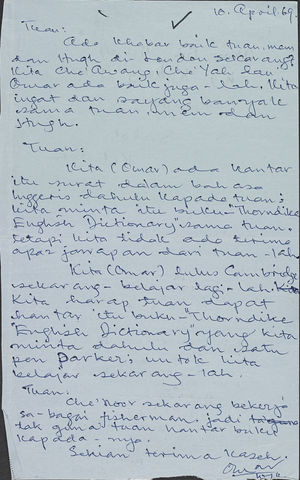 10. April. 69
Tuan:
Ada khabar baik tuan, mem
dan Hugh di London sekarang?
Kita Che' Awang, Che' Yah dan
Omar ada baik juga-lah. Kita
ingat dan sayang banyak
sama tuan, mem dan
Hugh.
Tuan:
Kita (Omar) ada hantar
itu surat dalam bahasa
Inggeris dahulu kapada tuan;
kita minta itu buku "Thorndike
English Dictionary" sama tuan.
tetapi kita tidak ada terima
apa2 jawapan dari tuan-lah.
Kita (Omar) lulus Cambridge
sekarang - belajar lagi-lah.
Kita harap tuan dapat
hantar itu buku - "Thorndike
English Dictionary" yang kita
minta dahulu dan satu
pen Parker; untok kita
belajar sekarang-lah.
Tuan:
Che' Noor sekarang bekerja
sa-bagai fisherman. jadi
tak guna tuan hantar buku
kapada-nya.
Sekian terima kaseh.
Omar